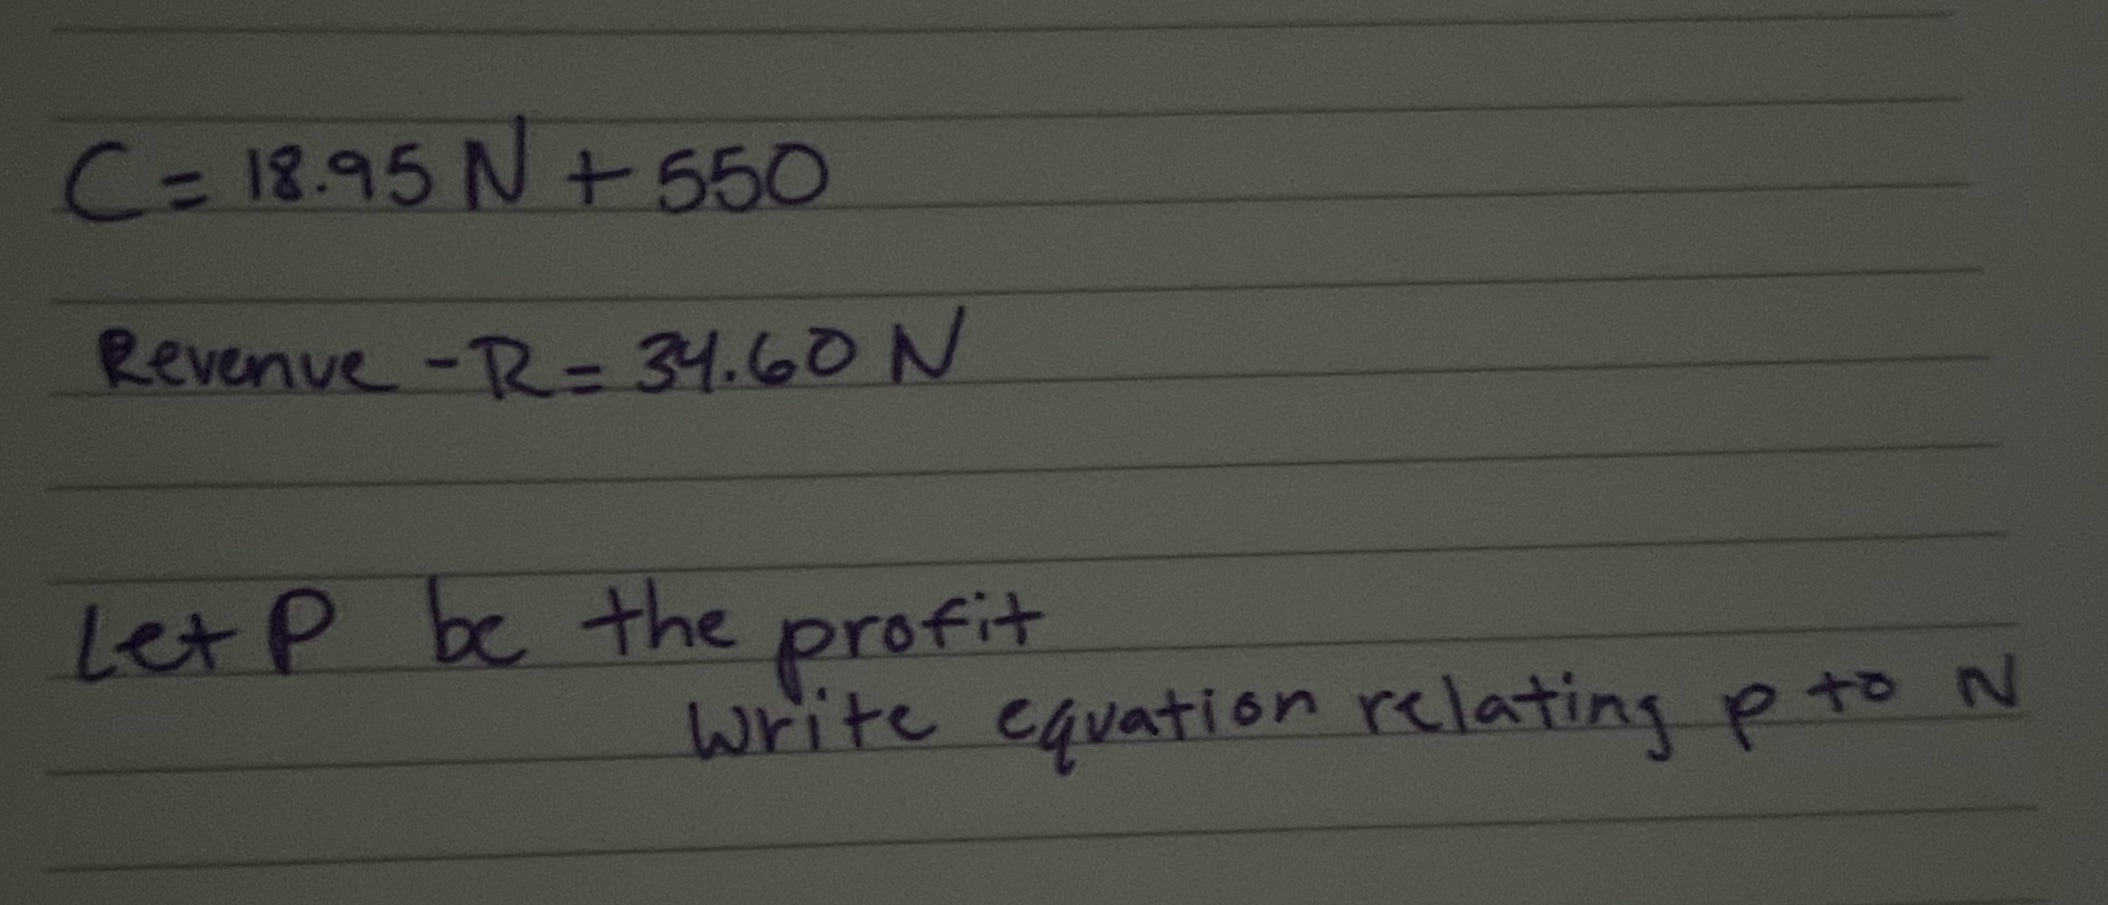 C = 18.95 N + 550
Revenue - R = 34.60 N
Let P be the profit
Write equation relating p to N